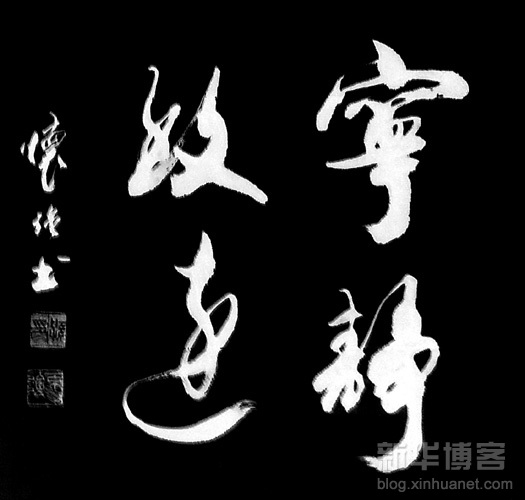 寧靜
致遠
懷强书
新华博客
blog.xinhuanet.com